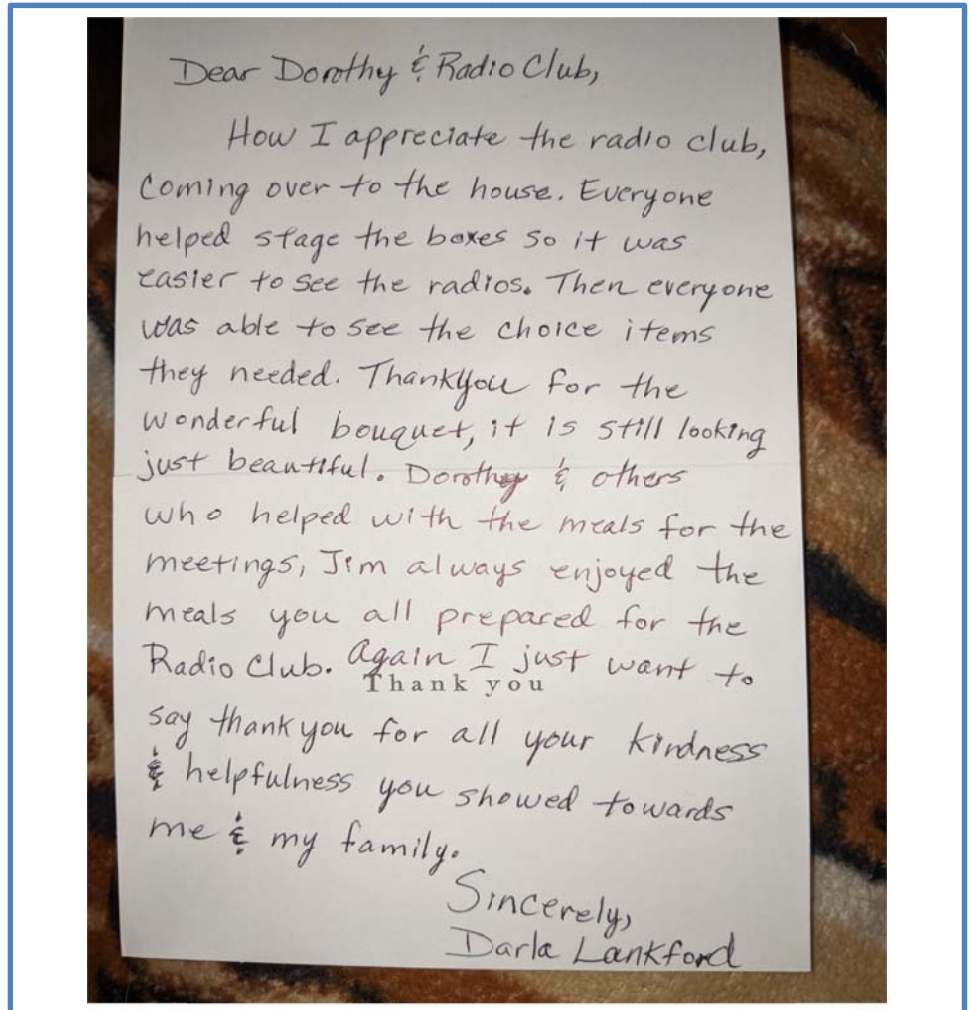 Dear Dorothy & Radio Club,
How I appreciate the radio club,
coming over to the house. Everyone
helped stage the boxes so it was
easier to see the radios. Then everyone
was able to see the choice items
they needed. ThankYou for the
wonderful bouquet, it is still looking
just beautiful. Dorothy & others
who helped with the meals for the
meetings, Jim always enjoyed the
meals you all prepared for the
Radio Club. Again I just want to
Thank you
say thank you for all your kindness
& helpfulness you showed towards
me & my family.
Sincerely,
Darla Lankford